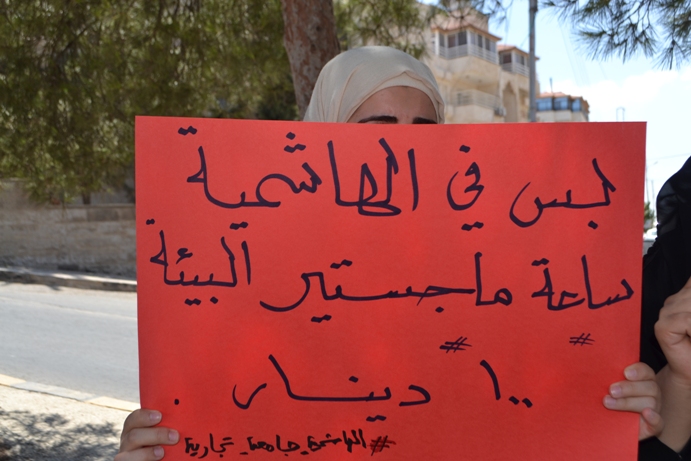 بس في الهاشمية
ساعة ماجستير البيئة
# ١٠٠ # دينار .
#الهاشمية_جامعة_تجارية